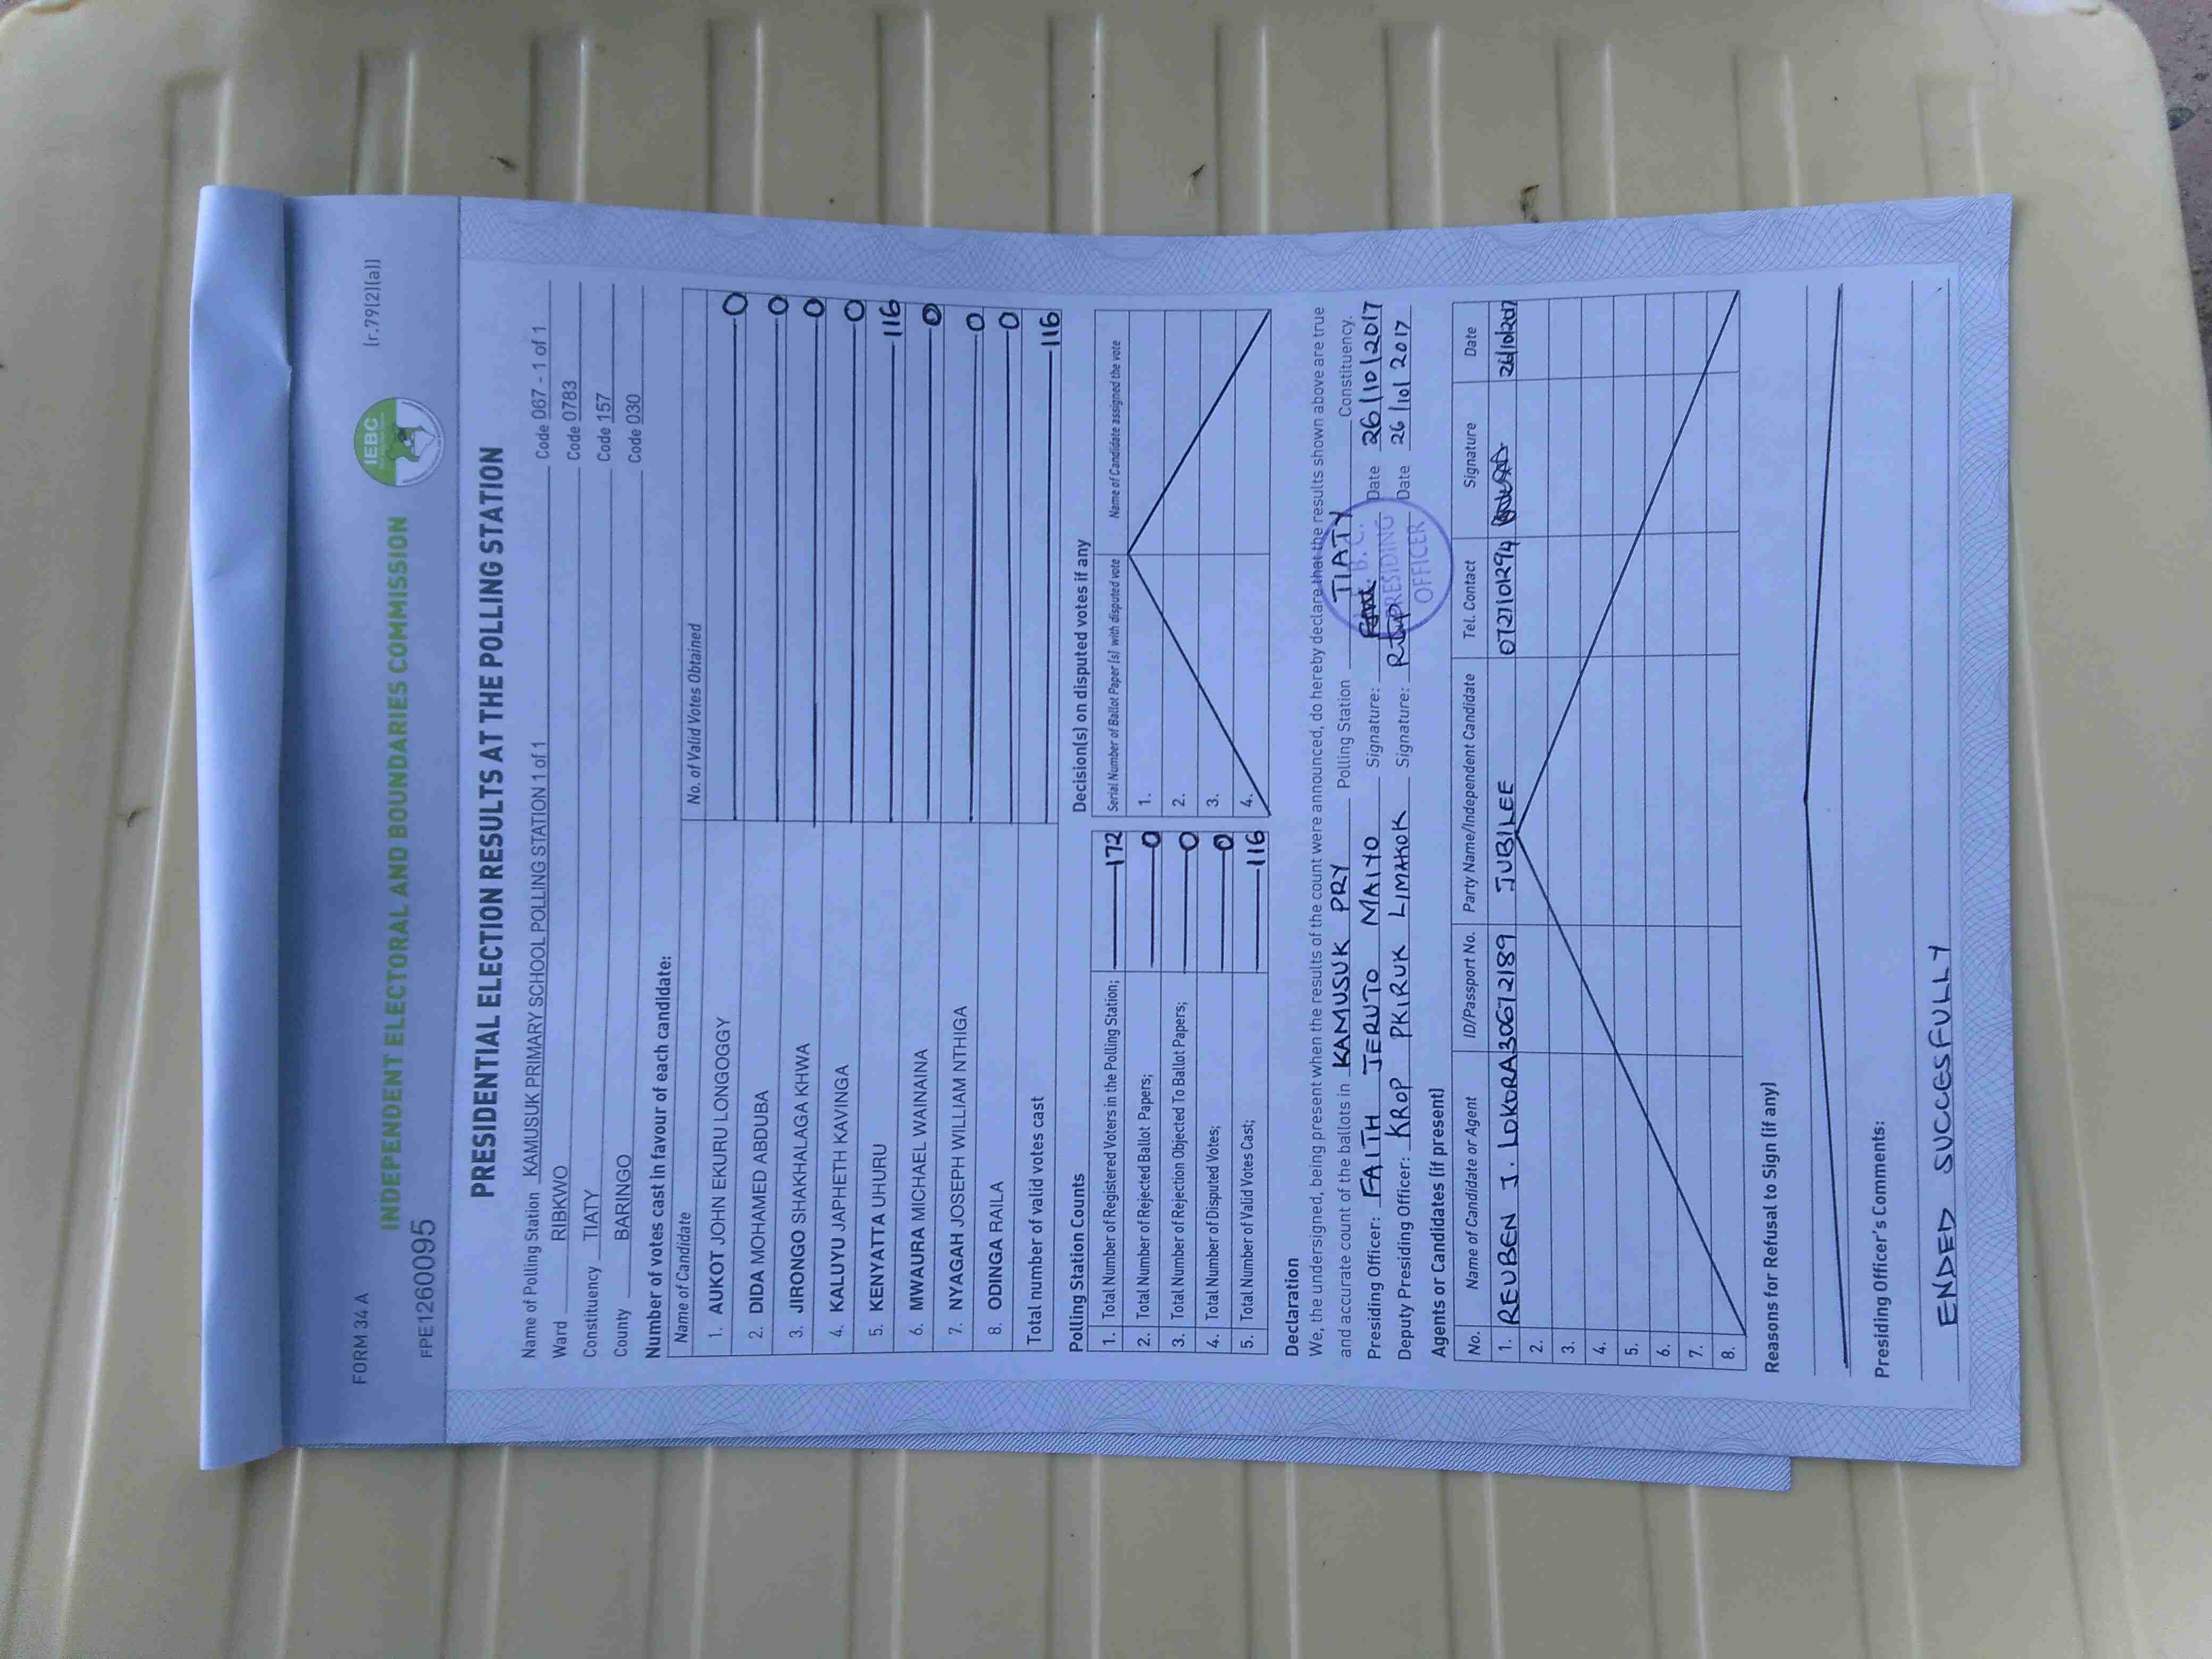 FORM 34 A
(r.79(2)(a))
IEBC
INDEPENDENT ELECTORAL AND BOUNDARIES COMMISSION
FPE1260095
PRESIDENTIAL ELECTION RESULTS AT THE POLLING STATION
Name of Polling Station KAMUSUK PRIMARY SCHOOL POLLING STATION 1 of 1 Code 067 - 1 of 1
Ward RIBKWO Code 0783
Constituency TIATY Code 157
County BARINGO Code 030
Number of votes cast in favour of each candidate:
Name of Candidate No. of Valid Votes Obtained
1. AUKOT JOHN EKURU LONGOGGY 0
2. DIDA MOHAMED ABDUBA 0
3. JIRONGO SHAKHALAGA KHWA 0
4. KALUYU JAPHETH KAVINGA 0
5. KENYATTA UHURU 116
6. MWAURA MICHAEL WAINAINA 0
7. NYAGAH JOSEPH WILLIAM NTHIGA 0
8. ODINGA RAILA 0
Total number of valid votes cast 116
Polling Station Counts Decision(s) on disputed votes if any
1. Total Number of Registered Voters in the Polling Station; 172 Serial Number of Ballot Paper (s) with disputed vote Name of Candidate assigned the vote
2. Total Number of Rejected Ballot Papers; 0 1.
3. Total Number of Rejection Objected To Ballot Papers; 0 2.
4. Total Number of Disputed Votes; 0 3.
5. Total Number of Valid Votes Cast; 116 4.
Declaration
We, the undersigned, being present when the results of the count were announced, do hereby declare that the results shown above are true
and accurate count of the ballots in KAMUSUK PRY Polling Station TIATY Constituency.
Presiding Officer: FAITH JERUTO MAIYO Signature: Date 26/10/2017
Deputy Presiding Officer: KROP PKIRUK LIMAKOK Signature: Date 26/10/2017
B. C.
PRESIDING
OFFICER
Agents or Candidates (if present)
No. Name of Candidate or Agent ID/Passport No. Party Name/Independent Candidate Tel. Contact Signature Date
1. REUBEN J. LOKORA 30672189 JUBILEE 0727101294 26/10/2017
2.
3.
4.
5.
6.
7.
8.
Reasons for Refusal to Sign (if any)
Presiding Officer's Comments:
ENDED SUCCESFULLY